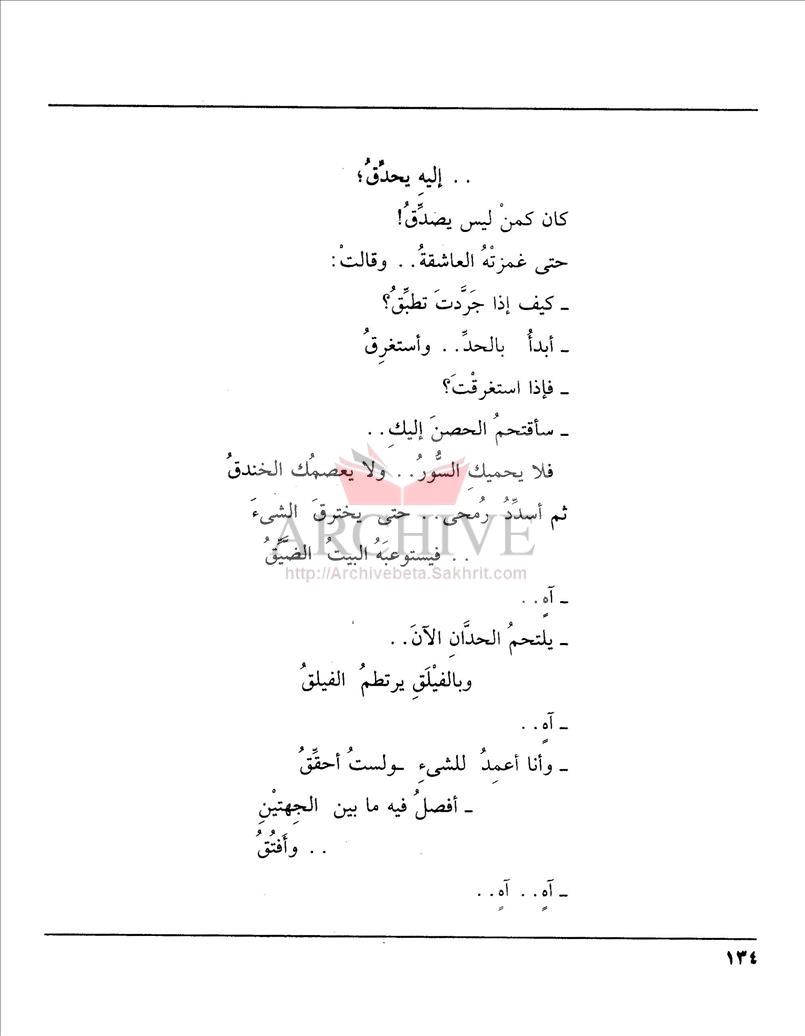 .. إليهِ يحدِّقُ؛
كان كمنْ ليس يصدِّقُ!
حتى غمزتْهُ العاشقةُ.. وقالتْ:
ـ كيف إذا جَرَّدتَ تطبِّقُ؟
ـ أبدأُ بالحدِّ.. وأستغرِقُ
ـ فإذا استغرقْتَ؟
ـ سأقتحمُ الحصنَ إليكِ..
فلا يحميكِ السُّورُ.. ولا يعصمُك الخندقُ
ثم أسدِّدُ رُمحى.. حتى يخترقَ الشىءَ
ARCHIVE
.. فيستوعبَهُ البيتُ الضَّيِّقُ
http://Archivebeta.Sakhrit.com
ـ آهٍ..
ـ يلتحمُ الحدَّانِ الآنَ..
وبالفيْلَقِ يرتطمُ الفيلقُ
ـ آهٍ..
ـ وأنا أعمِدُ للشىءِ ـولستُ أحقِّقُ
ـ أفصلُ فيه ما بين الجِهتيْنِ
.. وأَفتُقُ
ـ آهٍ.. آهٍ..
١٣٤